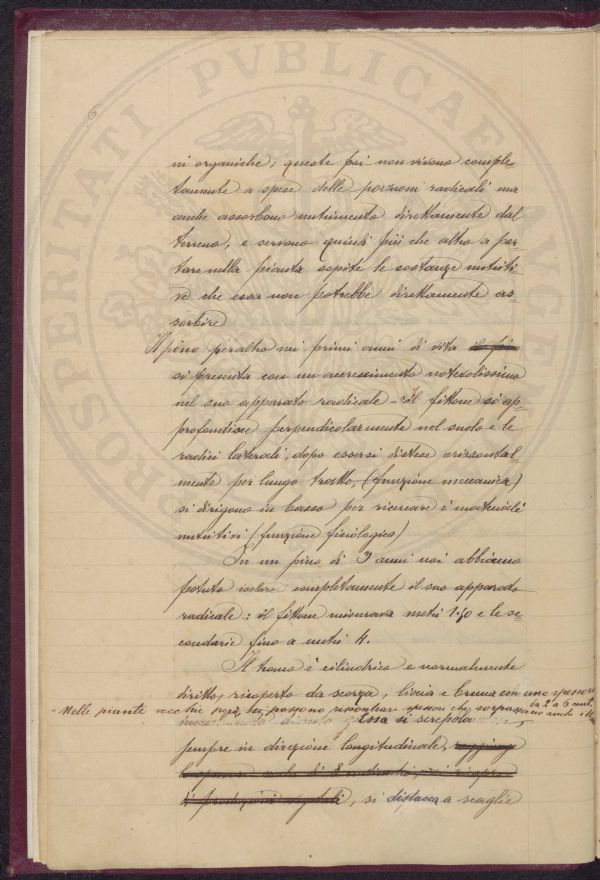 6
ni organiche; queste poi non vivono comple-
tamente a spese delle porzioni radicali ma
anche assorbono nutrimento direttamente dal
terreno, e servono quindi più che altro a por-
tare nella pianta ospite le sostanze nutriti-
ve che essa non potrebbe direttamente as-
sorbire
Il pino peraltro nei primi anni di vita il pino
si presenta con un accrescimento notevolissimo
nel suo apparato radicale - Il fittone si ap-
profondisce perpendicolarmente nel suolo e le
radici laterali, dopo essersi distese orizzontal-
mente per lungo tratto, (funzione meccanica)
si dirigono in basso per ricercare i materiali
nutritivi (funzione fisiologica)
In un pino di 3 anni noi abbiamo
potuto isolare completamente il suo apparato
radicale: il fittone misurava metri 1.50 e le se-
condarie fino a metri 4.
Il tronco è cilindrico e normalmente
diritto, ricoperto da scorza, liscia e bruna con uno spessore
da 2 a 6 cent.
- Nelle piante vecchie però, si possono riscontrare spessori che sorpassano anche i
Essa si screpola
sempre in direzione longitudinale,
, si distacca a scaglie
PROSPERITATI PVBLICAE AVGE